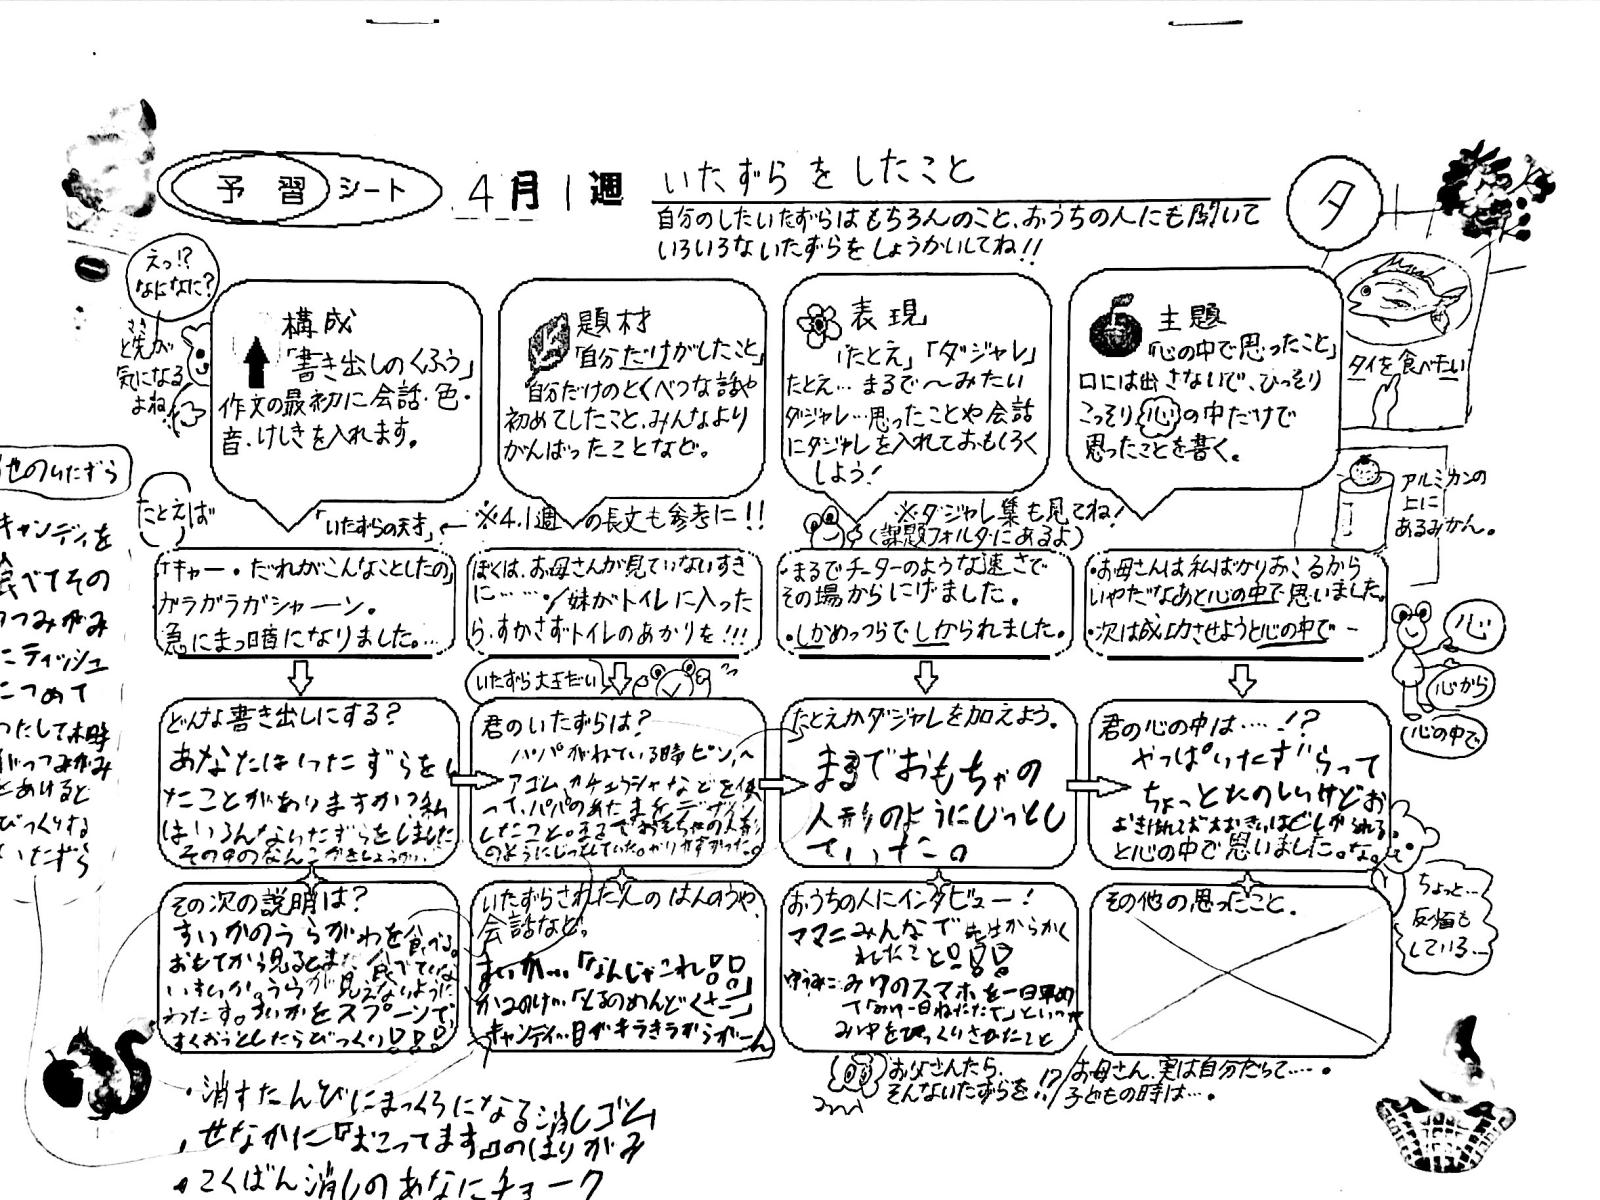 予習シート 4月1週 いたずらをしたこと
自分のしたいたずらはもちろんのこと、おうちの人にも聞いて
いろいろないたずらをしょうかいしてね!!
タ
えっ!?
なになに?
と先が
気になる
よね
構成
「書き出しのくふう」
作文の最初に会話・色・
音・けしきを入れます。
題材
「自分だけがしたこと」
自分だけのとくべつな話や
初めてしたこと、みんなより
がんばったことなど。
表現
「たとえ」「ダジャレ」
たとえ…まるで〜みたい
ダジャレ…思ったことや会話
にダジャレを入れておもしろく
しよう!
主題
「心の中で思ったこと」
口には出さないで、ひっそり
こっそり心の中だけで
思ったことを書く。
タイを食べたい
アルミカンの
上に
あるみかん。
たとえば
「いたずらの天才」←
※4.1週の長文も参考に!!
※ダジャレ集も見てね!
(課題フォルダにあるよ)
「キャー・だれがこんなことしたの」
ガラガラガシャーン。
急にまっ暗になりました。…
ぼくは、お母さんが見ていないすき
に……・/妹がトイレに入った
ら、すかさずトイレのあかりを!!!
・まるでチーターのような速さで
その場からにげました。
・しかめっつらでしかられました。
・お母さんは私ばかりおこるから
いやだなあと心の中で思いました。
・次は成功させようと心の中で－
心
心から
心の中で
いたずら大王だい
どんな書き出しにする?
あなたはいたずらをし
たことがありますか?私
はいろんないたずらをしました
君のいたずらは?
パパがねている時ピン、ヘ
アゴム、カチューシャなどを使
って、パパのあたまをデザイン
したこと。まるでおもちゃの人形
のようにじっとしていた。
たとえかダジャレを加えよう。
まるでおもちゃの
人形のようにじっとし
ていた。
君の心の中は……!?
やっぱいたずらって
ちょっとたのしいけどお
と心の中で思いました。な。
ちょっと…
反省も
している…
その次の説明は?
すいかのうらがわを食べる。
おもてから見るとまだ食べていな
いすいか。うらが見えないように
わたす。すいかをスプーンで
すくおうとしたらびっくり!!!
いたずらされた人のはんのうや、
会話など。
すいか…「なんじゃこれ!!」
かみのけ…「とるのめんどくさー」
キャンディ…目がキラキラからがーん
おうちの人にインタビュー!
ママ=みんなで先生からかく
れたこと!!!
みゆのスマホを一日早め
その他の思ったこと。
お父さんたら、
そんないたずらを!?
お母さん、実は自分だって…・。
子どもの時は…・。
他のいたずら
キャンディを
食べてその
つつみがみ
にティッシュ
びっくりする
いたずら
・消すたんびにまっくろになる消しゴム
・せなかに『おこってます』のはりがみ
・こくばん消しのあなにチョーク